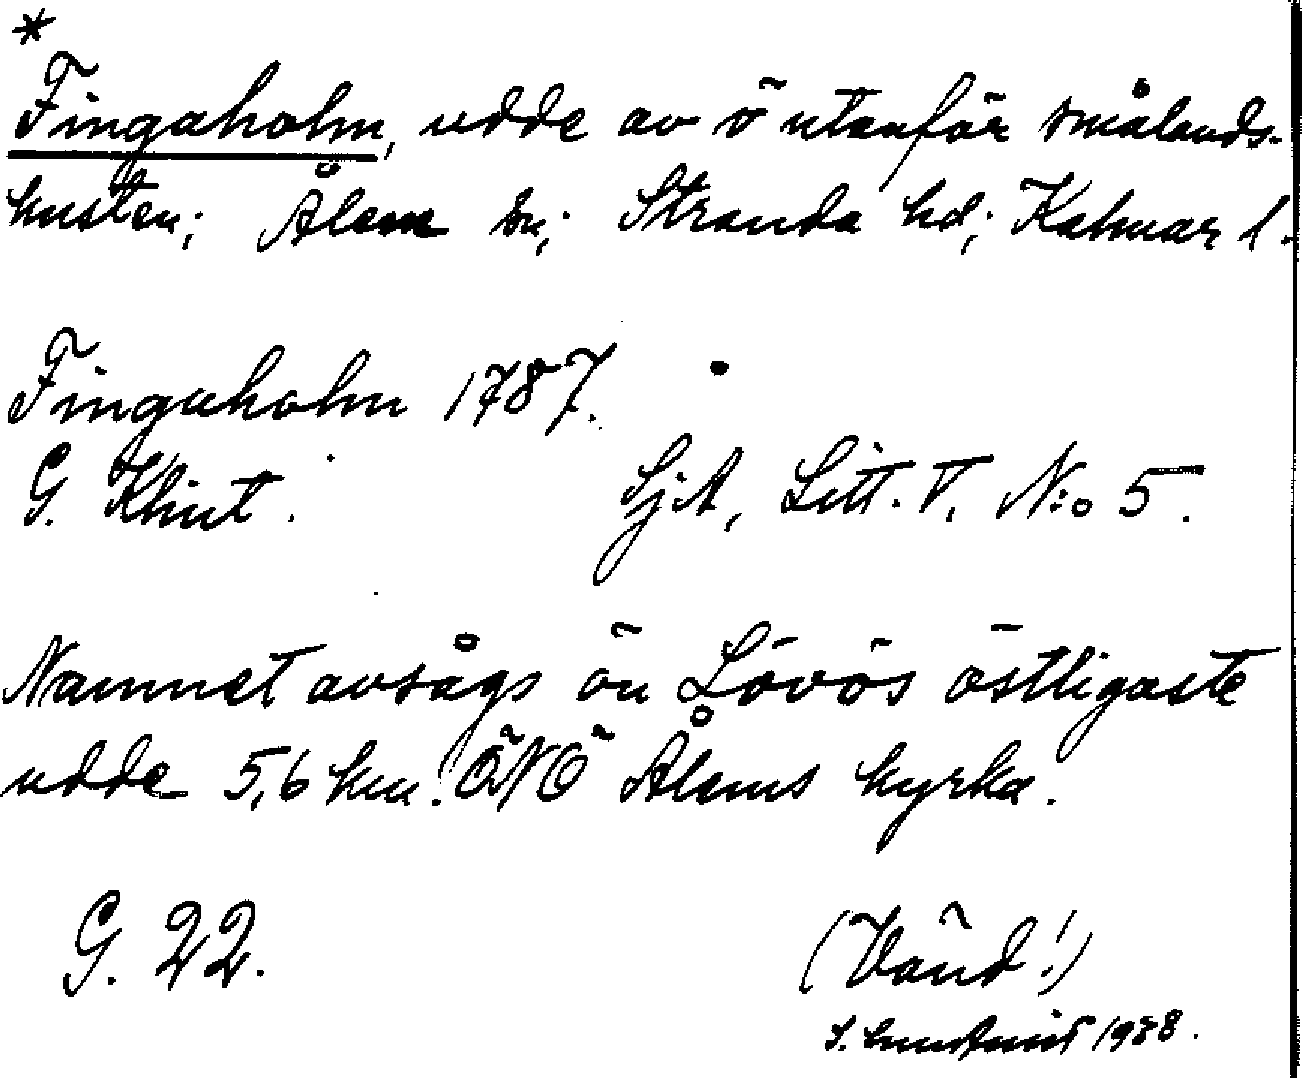 *
Fingaholm, udde av ö utanför smålands-
kusten; Ålem sn; Stranda hd; Kalmar l.
Fingaholm 1787.
G. Klint. SjA, Litt. V. N:o 5.
Namnet avsågs ön Lövös östligaste
udde 5,6 km. ÖNÖ Ålems kyrka.
G. 22.
(Vänd!)
1938.